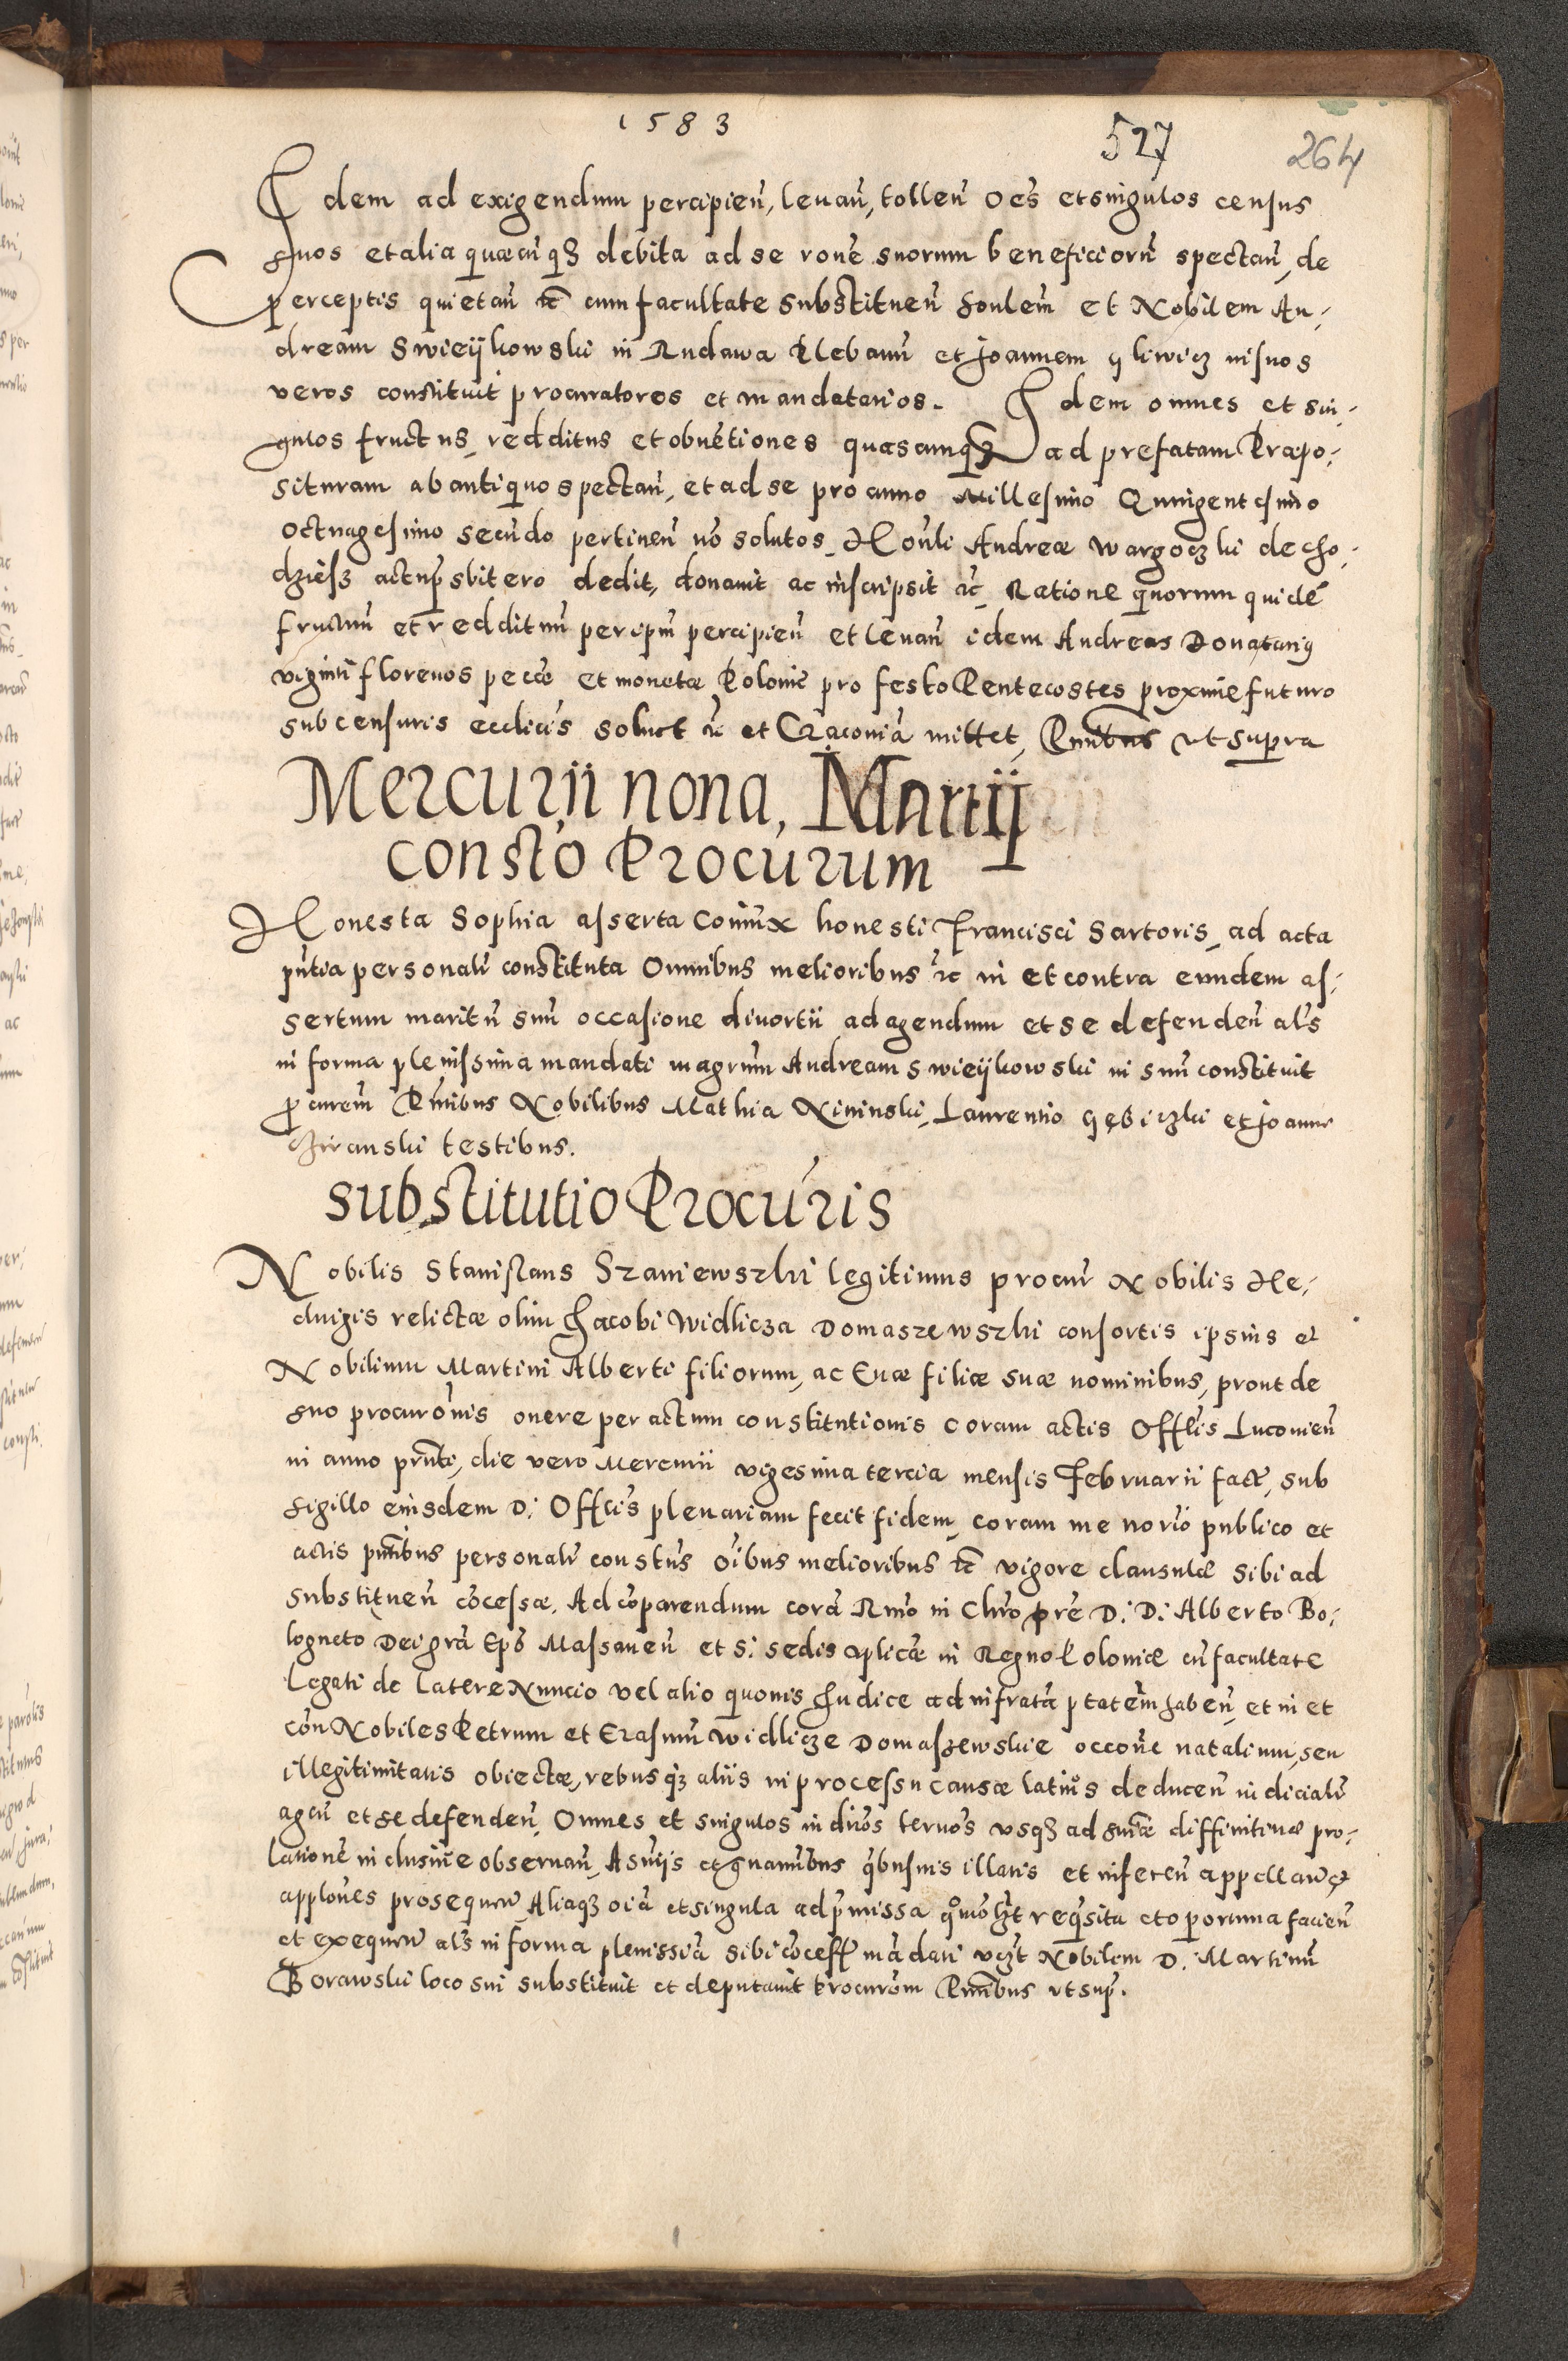 1583
527
264
Idem ad exigendum percipien̄, levan̄, tollen̄ oēs et singulos census
suos et alia quæcūq3 debita ad se rōne suorum beneficiorū spectan̄, de
perceptis quietan̄ etc̄ cum facultate substituen̄ Honlem̄ et Nobilem An-
dream Swieÿkowski in Rudawa Plebanū et Joannem Gliwicz in suos
veros constituit procuratores et mandatarios. Idem omnes et sin-
gulos fructus, redditus et obvētiones quascumq3 ad prefatam Præpo-
situram ab antiquo spectan̄, et ad se pro anno Millesimo Quingentesimo
octuagesimo secūdo pertinen̄ nō solutos, Honl̄i Andreæ Wargoczki de Cho-
dziesz actu p̄sbitero dedit, donavit ac inscripsit etc̄, Ratione quorum quidē
fructuū et reddituū per ipm̄ percipien̄ et levan̄ idem Andreas Donatarius
viginti florenos pecūæ et monetæ Polonic̄ pro festo Pentecostes proxime futuro
sub censuris eccl̄icis solvet etc̄ et Cracoviā mittet, Pn̄tibus ut supra
Mercurii nona, Martij
Constō Procurum
Honesta Sophia asserta coniūx honesti Francisci Sartoris, ad acta
pn̄tia personalr̄ constituta Omnibus melioribus etc̄ in et contra eundem as-
sertum maritū suū occasione divortii ad agendum et se defenden̄ als̄
in forma plenissima mandati magrūm Andream Swieÿkowski in suū constituit
p̄curem̄ Pn̄tibus Nobilibus Mathia Nininski, Laurentio Gębiczki et Joanne
testibus.
Substitutio Procuris
Nobilis Stanislaus Szaniewszki legitimus procur̄ Nobilis He-
dvigis relictæ olim Jacobi Widlicza Domaszewszki consortis ipsius et
Nobilium Martini Alberti filiorum, ac Evæ filiæ suæ nominibus, prout de
suo procurōnis onere per actum constitutionis coram actis Offl̄is Lucovien̄
in anno prn̄ti, die vero Mercurii vigesima tercia mensis Februarii fact̄, sub
sigillo eiusdem D. Offl̄is plenariam fecit fidem, coram me norīo publico et
actis pn̄tibus personalr̄ constus̄ oībus melioribus etc̄ vigore clausulæ sibi ad
substituen̄ cōcessæ. Ad cōparendum corā Rmō in Chrō pr̄e D. D. Alberto Bo-
logneto Dei grā Ep̄o Massanen̄ et S. Sedis ap̄licæ in Regno Poloniæ cū facultate
Legati de Latere Nuncio vel alio quovis Judice ad infrattā p̄tatem̄ haben̄, et in et
con̄ Nobiles Petrum et Erasmū Widlicze Domaszewskie occone natalium, seu
illegitimitatis obiectæ, rebusq3 aliis in processu causæ latius deducen̄ iudicialr̄
agen̄ et se defenden̄, Omnes et singulos iudrōs ternōs usq3 ad sn̄iæ diffinitivæ pro-
lationē inclusive observan̄, A sn̄iis et gravānibus q̄busvis illatis et inferen̄ appelland̄
applōnes prosequen̄, Aliaq3 oīa et singula ad p̄missa quōmodol̄t reqsita et oportuna facien̄
et exequen̄ als̄ in forma plenissiā sibi cōcess̄ mādati vigore Nobilem D. Martinū
Borawski loco sui substituit et deputavit Procurōm Pn̄tibus ut sup̄.